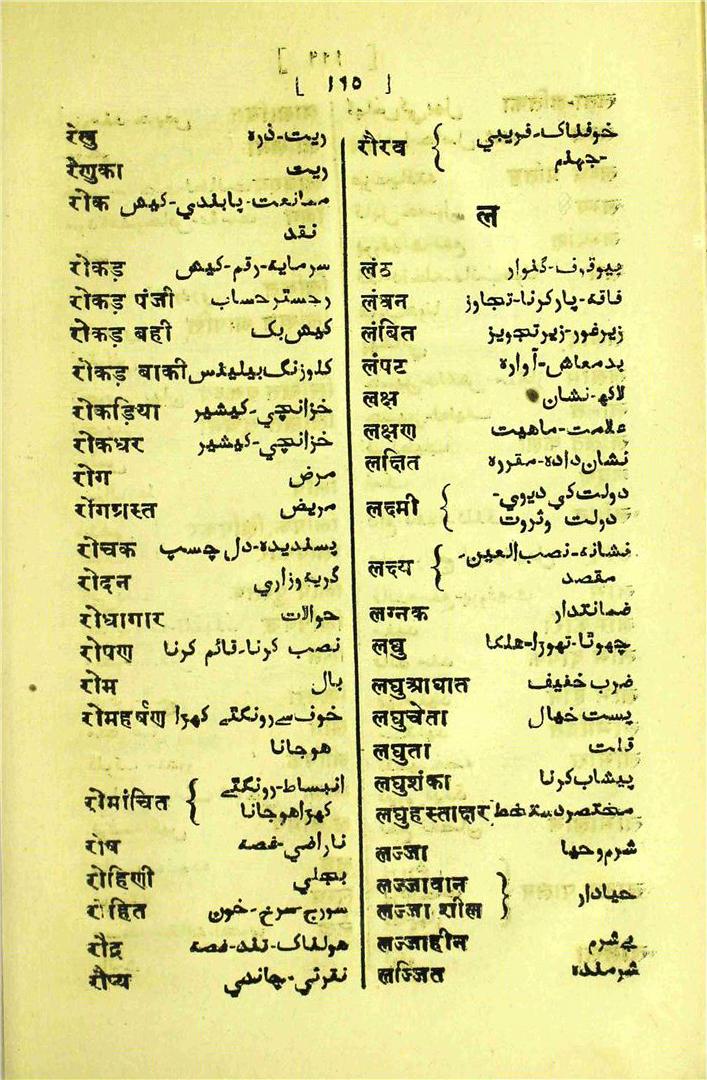 [ ١٦٥ ]
रेणु ریت-ذرہ
रैणुका ریت
रोक ممانعت-پابندي-کیش
نقد
रोकड़ سرمایہ-رقم-کیش
रोकड़ पंजी رجسترحساب
रोकड़ बही کیش بک
रोकड़ बाकी کلوزنگ بیلینس
रोकड़िया خزانچي-کیشیر
रोकधर خزانچي-کیشیر
रोग مرض
रोगग्रस्त مریض
रोचक پسندیدہ-دل چسپ
रोदन گریہ وزاري
रोधागार حوالات
रोपण نصب کرنا-قائم کرنا
रोम بال
रोमहर्षण خوف سے رونگتے کھڑا
ھوجانا
रोमांचित { انبساط-رونگتے
کھڑاھوجانا
रोष ناراضي-غصہ
रोहिणी بجلي
रोहित سورج سرخ-خون
रौद्र ھولناک-تند-غصہ
रौप्य نقرئي-چاندي
रौरव { خوفناک-فریبي
-جہنم
ल
लंठ بیوقوف-گنوار
लंघन فاقہ-پارکرنا-تجاوز
लंबित زیرغور-زیرتجویز
लंपट بدمعاش-آوارہ
लक्ष لاکھ-نشان
लक्षण علامت-ماھیت
लक्षित نشان دادہ-مقررہ
लक्ष्मी { دولت کي دیوي-
دولت وثروت
लक्ष्य { نشانہ-نصب العین-
مقصد
लग्नक ضمانتدار
लघु چھوتا-تھوڑا-ھلکا
लघुआघात ضرب خفیف
लघुचेता پست خیال
लघुता قلت
लघुशंका پیشاب کرنا
लघुहस्ताक्षर مختصردستخط
लज्जा شرم وحیا
लज्जावान
लज्जा शील } حیادار
लज्जाहीन بے شرم
लज्जित شرمندہ